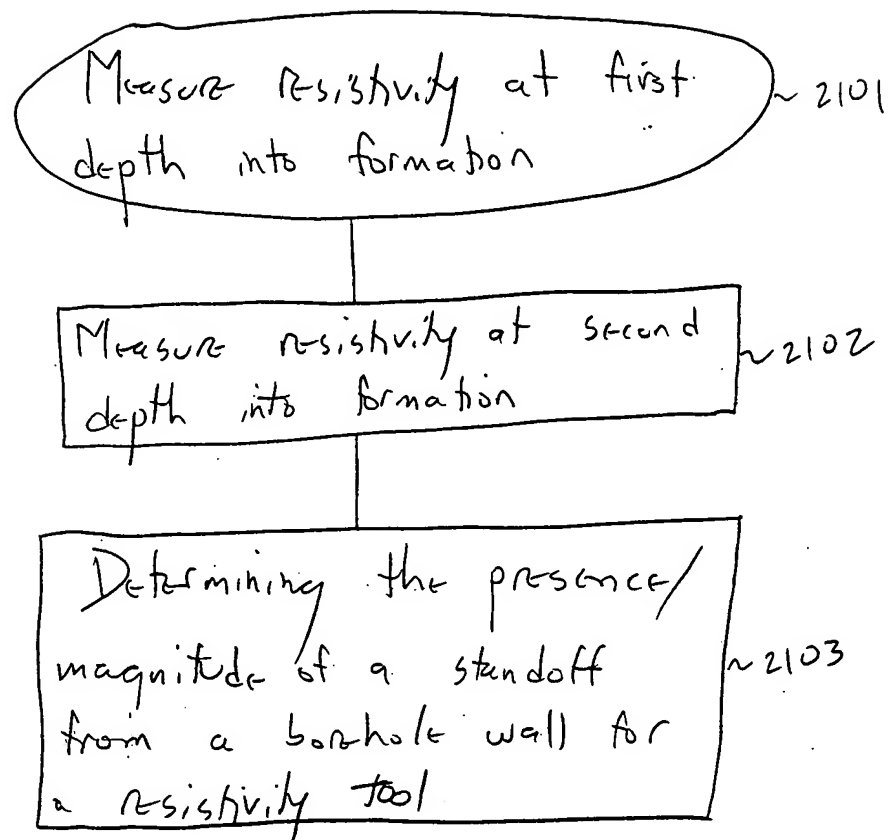 Measure resistivity at first
depth into formation
~ 2101
Measure resistivity at second
depth into formation
~ 2102
Determining the presence/
magnitude of a standoff
from a borehole wall for
a resistivity tool
~ 2103